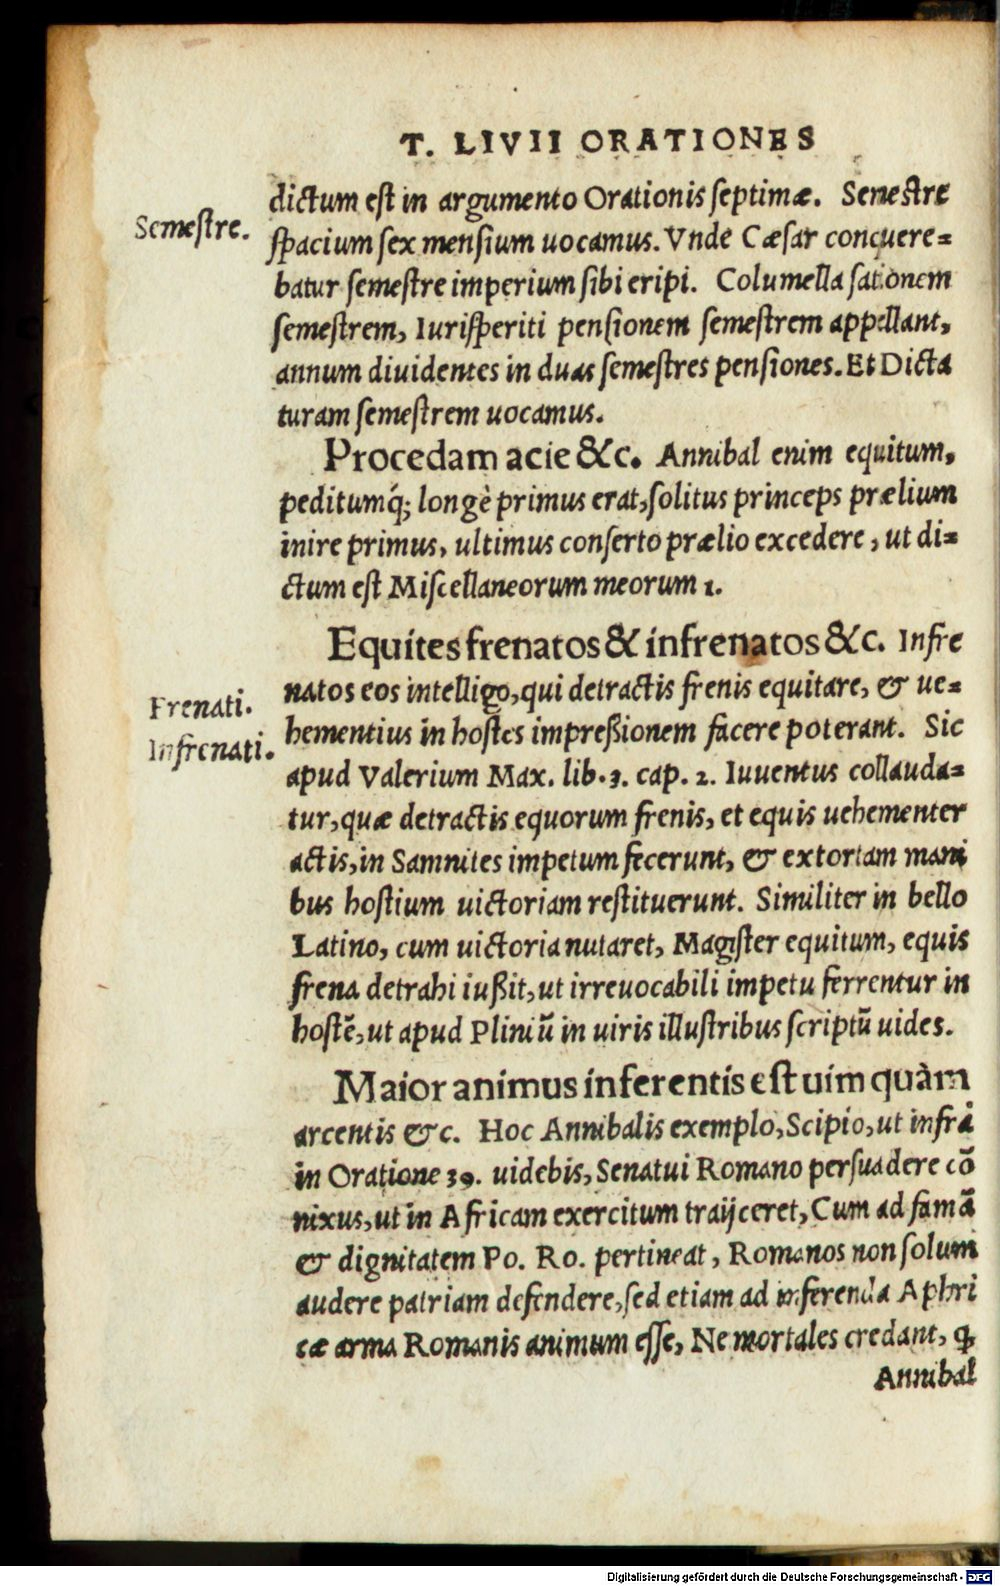 T. LIVII ORATIONES
dictum est in argumento Orationis septimæ. Semestre
Semestre.
spacium sex mensium uocamus. Vnde Cæsar conquere=
batur semestre imperium sibi eripi. Columella sationem
semestrem, Iurisperiti pensionem semestrem appellant,
annum diuidentes in duas semestres pensiones. Et Dicta
turam semestrem uocamus.
Procedam acie &c. Annibal enim equitum,
peditumq́; longè primus erat, solitus princeps prælium
inire primus, ultimus conserto prælio excedere, ut di=
ctum est Miscellaneorum meorum 1.
Equites frenatos & infrenatos &c. Infre
natos eos intelligo, qui detractis frenis equitare, & ue=
Frenati.
hementius in hostes impreßionem facere poterant. Sic
Infrenati.
apud Valerium Max. lib. 3. cap. 2. Iuuentus collauda=
tur, quæ detractis equorum frenis, et equis uehementer
actis, in Samnites impetum fecerunt, & extortam mani
bus hostium uictoriam restituerunt. Similiter in bello
Latino, cum uictoria nutaret, Magister equitum, equis
frena detrahi iußit, ut irreuocabili impetu ferrentur in
hostē, ut apud Pliniū in uiris illustribus scriptū uides.
Maior animus inferentis est uim quàm
arcentis &c. Hoc Annibalis exemplo, Scipio, ut infrà
in Oratione 39. uidebis, Senatui Romano persuadere cō
nixus, ut in Africam exercitum traijceret, Cum ad famā
& dignitatem Po. Ro. pertineat, Romanos non solum
audere patriam defendere, sed etiam ad inferenda Aphri
cæ arma Romanis animum esse, Ne mortales credant, ꝙ
Annibal
Digitalisierung gefördert durch die Deutsche Forschungsgemeinschaft - DFG